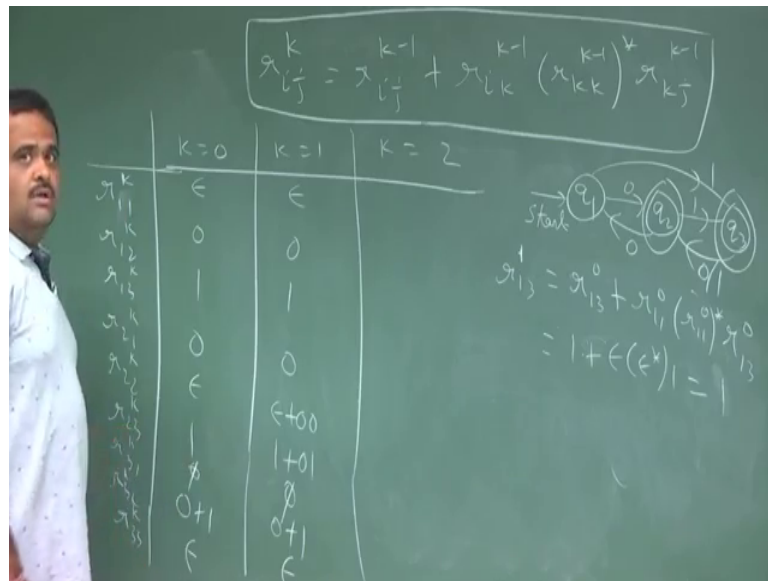 r_{ij}^{k} = r_{ij}^{k-1} + r_{ik}^{k-1} (r_{kk}^{k-1})^{*} r_{kj}^{k-1}
k=0 k=1 k=2
r_{11}^{k} ϵ ϵ
r_{12}^{k} 0 0
r_{13}^{k} 1 1
r_{21}^{k} 0 0
r_{22}^{k} ϵ ϵ+00
r_{23}^{k} 1 1+01
r_{31}^{k} ∅ ∅
r_{32}^{k} 0+1 0+1
r_{33}^{k} ϵ ϵ
1
Start q_1 0 q_2 1 q_3
0 0/1
r_{13}^{1} = r_{13}^{0} + r_{11}^{0} (r_{11}^{0})^{*} r_{13}^{0}
= 1 + ϵ(ϵ*)1 = 1